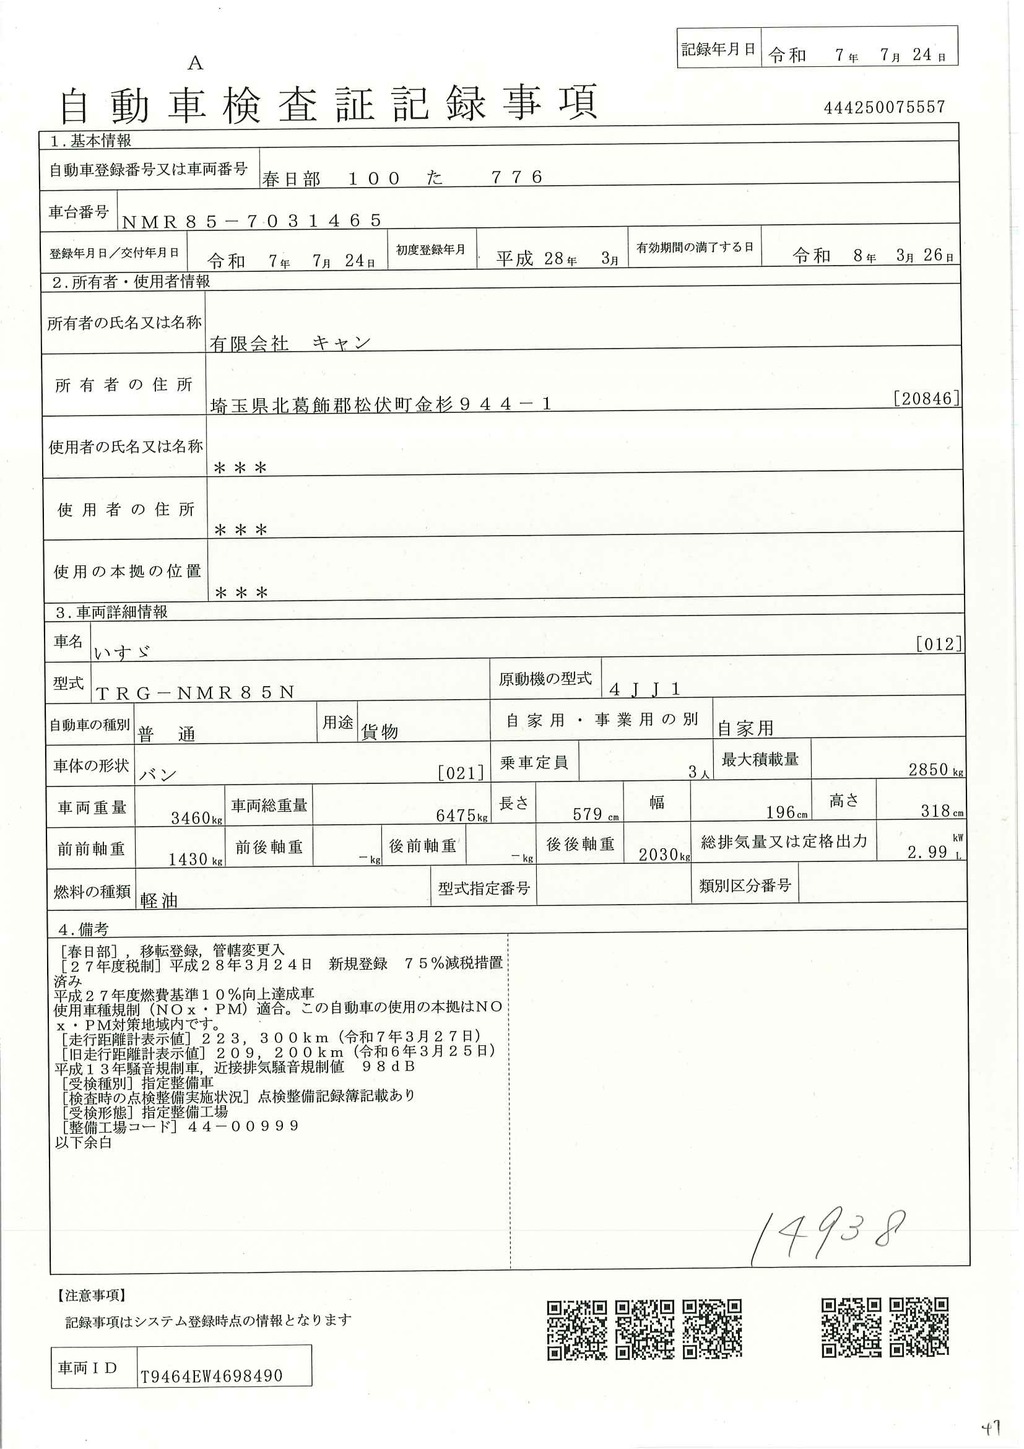 記録年月日 令和 7年 7月 24日
A
自動車検査証記録事項
444250075557
1.基本情報
自動車登録番号又は車両番号 春日部 100 た 776
車台番号 NMR85-7031465
登録年月日/交付年月日 令和 7年 7月 24日 初度登録年月 平成 28年 3月 有効期間の満了する日 令和 8年 3月 26日
2.所有者・使用者情報
所有者の氏名又は名称 有限会社 キャン
所有者の住所 埼玉県北葛飾郡松伏町金杉944-1 [20846]
使用者の氏名又は名称 ***
使用者の住所 ***
使用の本拠の位置 ***
3.車両詳細情報
車名 いすゞ [012]
型式 TRG-NMR85N 原動機の型式 4JJ1
自動車の種別 普 通 用途 貨物 自家用・事業用の別 自家用
車体の形状 バン [021] 乗車定員 3人 最大積載量 2850kg
車両重量 3460kg 車両総重量 6475kg 長さ 579cm 幅 196cm 高さ 318cm
前前軸重 1430kg 前後軸重 -kg 後前軸重 -kg 後後軸重 2030kg 総排気量又は定格出力 2.99 kW L
燃料の種類 軽油 型式指定番号 類別区分番号
4.備考
[春日部],移転登録,管轄変更入
[27年度税制]平成28年3月24日 新規登録 75%減税措置
済み
平成27年度燃費基準10%向上達成車
使用車種規制(NOx・PM)適合。この自動車の使用の本拠はNO
x・PM対策地域内です。
[走行距離計表示値]223,300km(令和7年3月27日)
[旧走行距離計表示値]209,200km(令和6年3月25日)
平成13年騒音規制車,近接排気騒音規制値 98dB
[受検種別]指定整備車
[検査時の点検整備実施状況]点検整備記録簿記載あり
[受検形態]指定整備工場
[整備工場コード]44-00999
以下余白
14938
【注意事項】
記録事項はシステム登録時点の情報となります
車両ID T9464EW4698490
47